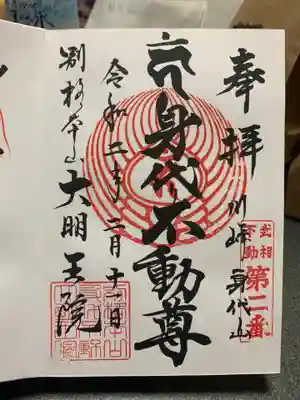 奉拝
川崎 身代山
武相
不動
第二番
身代不動尊
令和二年二月十一日
別格本山 大明王院